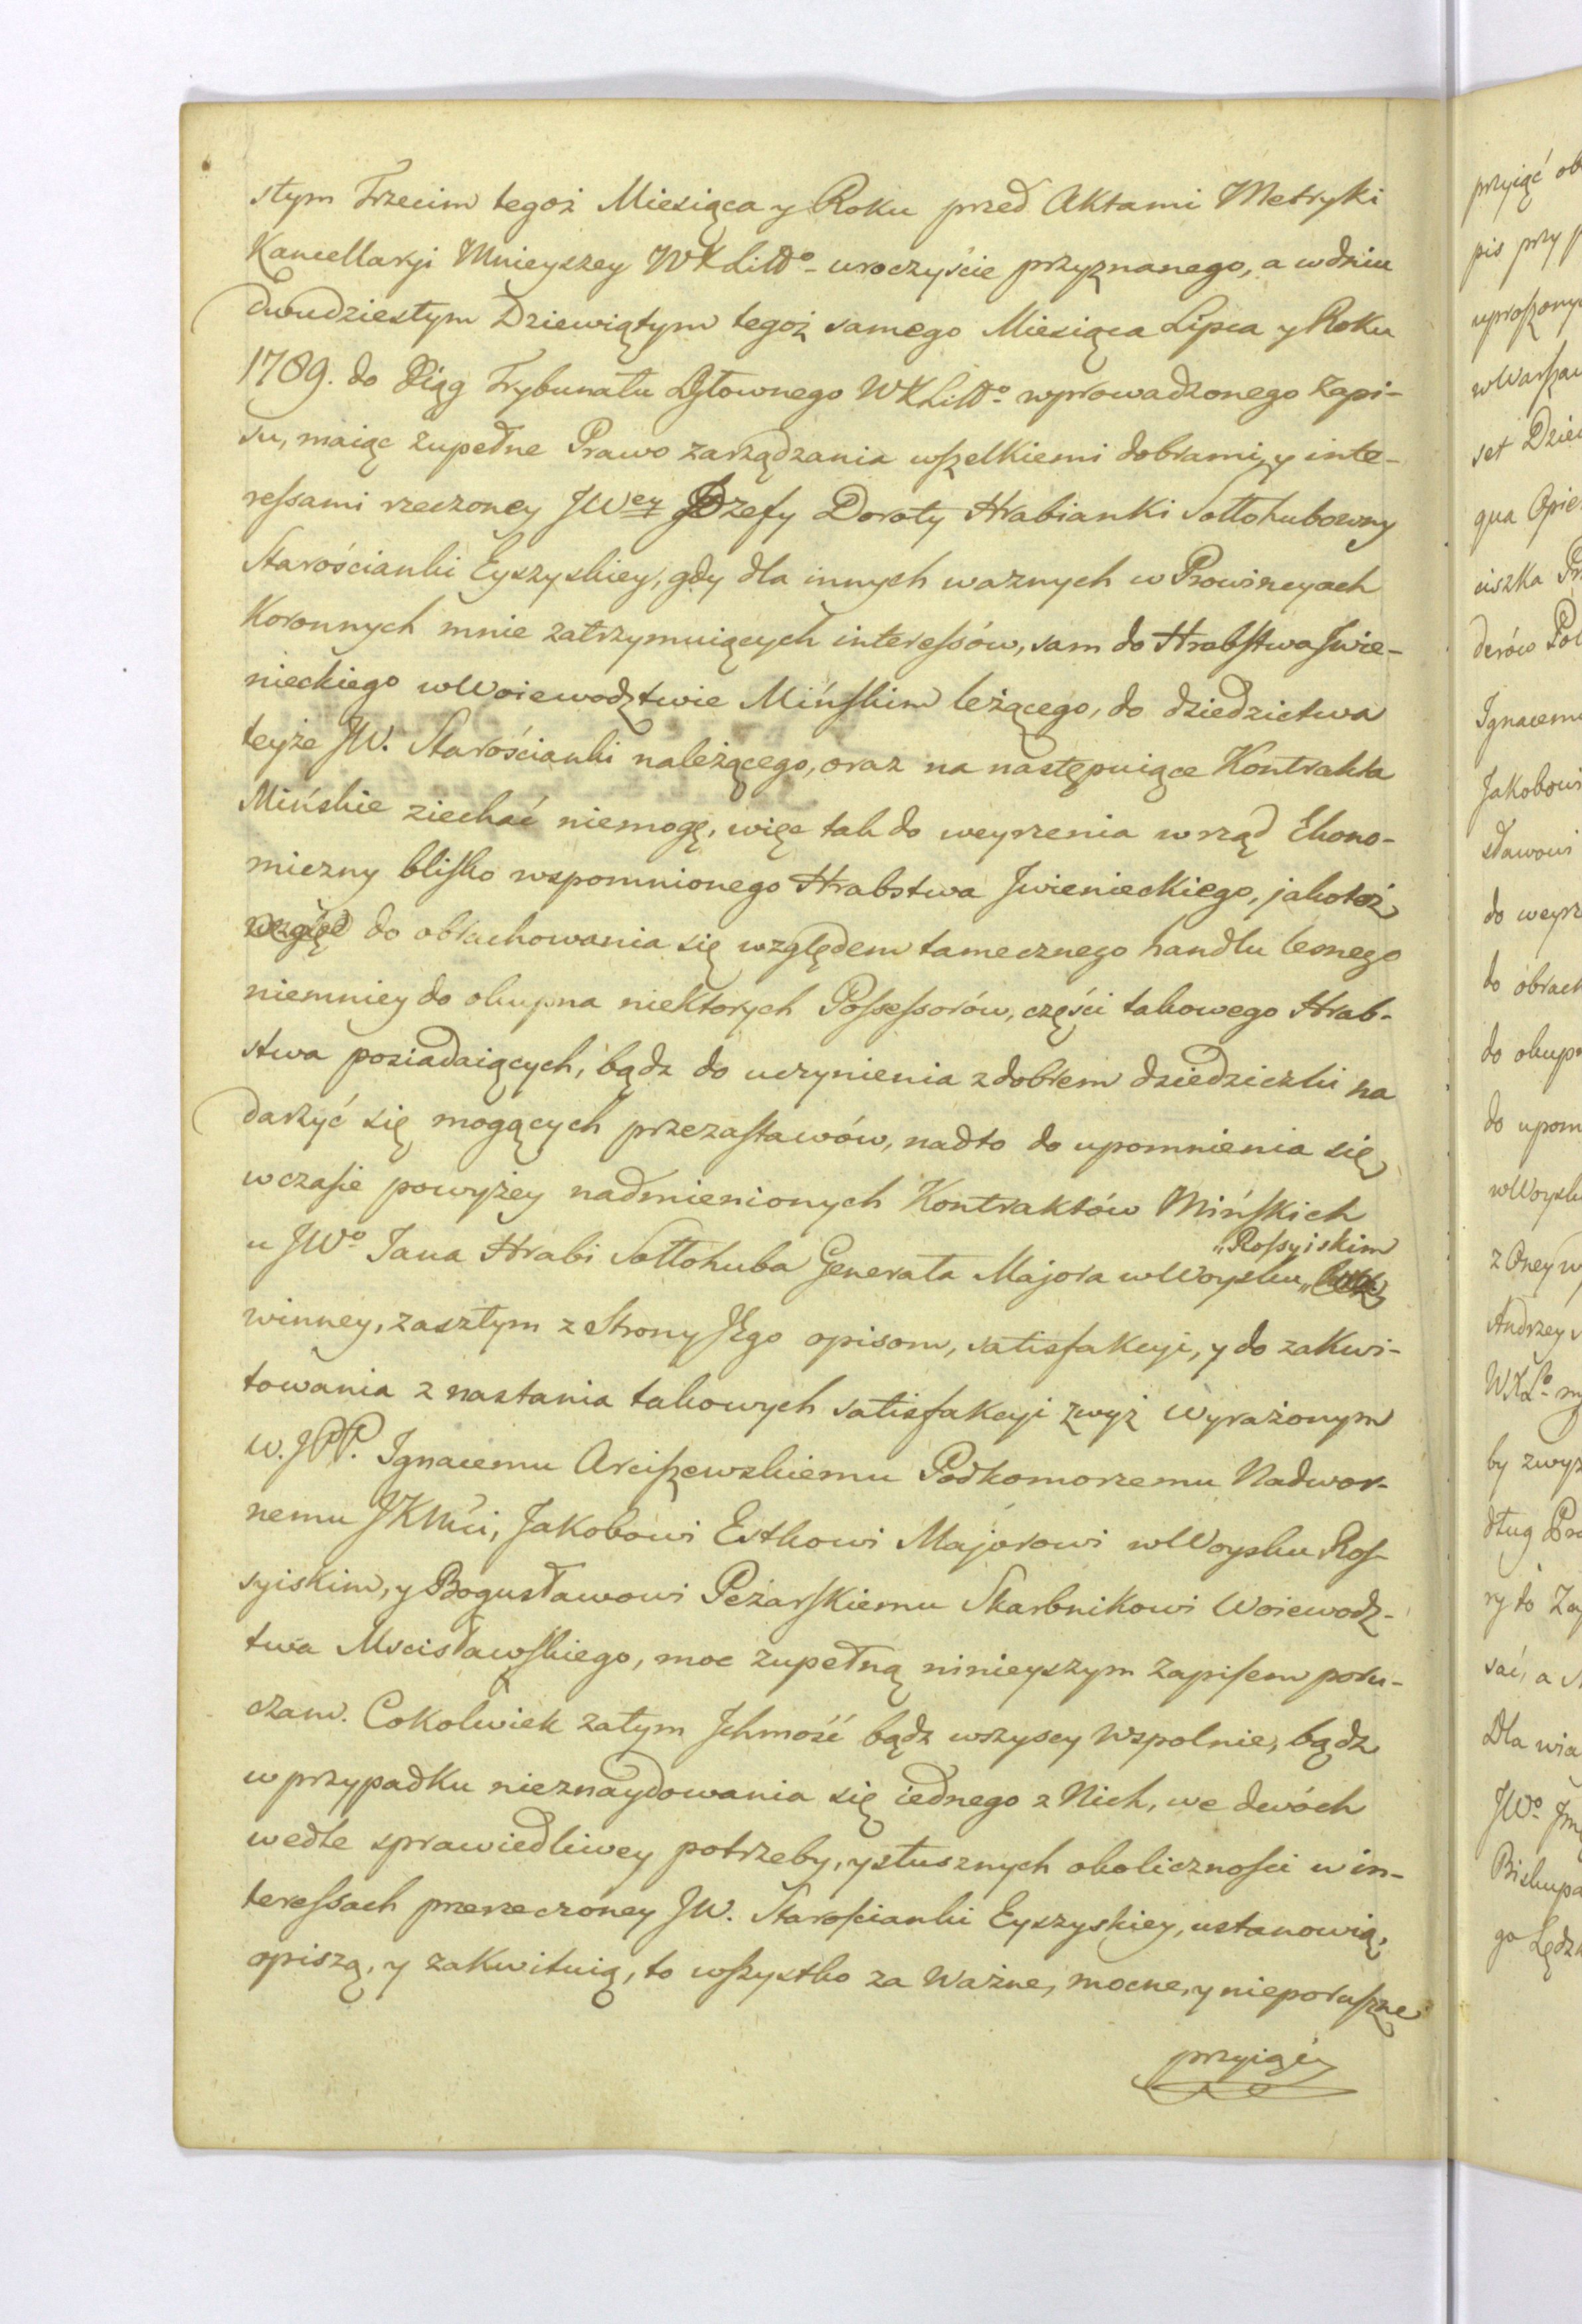 stym Trzecim tegoż Miesiąca y Roku przed Aktami Metryki
Kancellaryi Mnieyszey WXLittº uroczyście przyznanego, a w dniu
dwudziestym Dziewiątym tegoż samego Miesiąca Lipca y Roku
1789. do Xiąg Trybunału Głownego WXLittº wprowadzonego Zapi-
su, maiąc zupełne Prawo zarządzania wszelkiemi dobrami, y inte-
ressami rzeczoney JWey Józefy Doroty Hrabianki Sołłohubowny
Starościanki Eyszyskiey, gdy dla innych ważnych w Prowincyach
Koronnych mnie zatrzymuiących interessów, sam do Hrabstwa Jwie-
nieckiego w Woiewodztwie Mińskim leżącego, do dziedzictwa
teyże JW. Starościanki należącego, oraz na następuiące Kontrakta
Mińskie ziechać niemogę, więc tak do weyrzenia w rząd Ekono-
miczny blisko wspomnionego Hrabstwa Jwienieckiego, jakoteż
do obrachowania się względem tamecznego handlu lesnego
niemniey do okupna niektorych Possessorów, części takowego Hrab-
stwa posiadaiących, bądz do uczynienia z dobrem dziedziczki na
darzyć się mogących przezastawów, nadto do upomnienia się
w czasie powyżey nadmienionych Kontraktów Mińskich
u JWº Jana Hrabi Sołłohuba Generała Majora w Woysku „Rossyiskim
winney, zaszłym z Strony JEgo opisom, satisfakcyi, y do zakwi-
towania z nastania takowych satisfakcyi zwyż wyrażonym
W.JPP. Ignacemu Arciszewskiemu Podkomorzemu Nadwor-
nemu JKMci, Jakobowi Estkowi Majorowi w Woysku Ros-
syiskim, y Bogusławowi Peżarskiemu Skarbnikowi Woiewodz-
twa Mscisławskiego, moc zupełną ninieyszym Zapisem poru-
czam. Cokolwiek zatym Ichmość bądz wszyscy wspolnie, bądz
w przypadku nieznaydowania się iednego z Nich, we dwóch
wedle sprawiedliwey potrzeby, y słusznych okoliczności w in-
teressach przerzeczoney JW. Starościanki Eyszyskiey, ustanowią,
opiszą, y zakwituią, to wszystko za Ważne, mocne, y nieporuszne
przyiąć
przyiąć ob
pis przy p
uproszony
w Warszaw
set Dziew
qua Opie
ciszka
derów Pol
Ignacem
Jakobowi
sławowi
do weyrz
do obrach
do okup
do upom
w Woysku
z Oney w
Andrzey
by zwyż
dług
ry do Za
sać, a
Dla wia
JWº
Biskupa